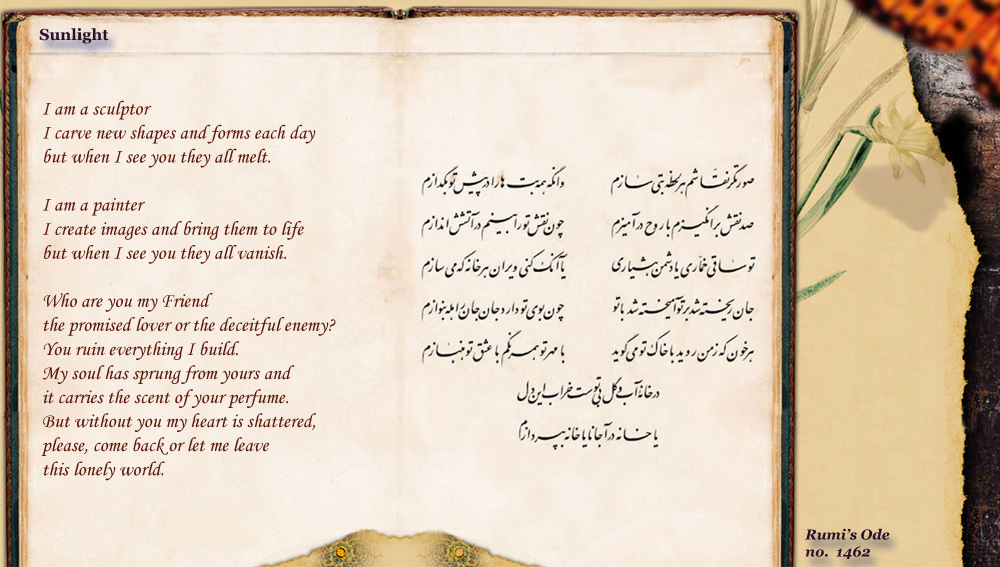 Sunlight
I am a sculptor
I carve new shapes and forms each day
but when I see you they all melt.
I am a painter
I create images and bring them to life
but when I see you they all vanish.
Who are you my Friend
the promised lover or the deceitful enemy?
You ruin everything I build.
My soul has sprung from yours and
it carries the scent of your perfume.
But without you my heart is shattered,
please, come back or let me leave
this lonely world.
صورتگر نقاشم هر لحظه بتی سازم وانگه همه بت ها را در پیش تو بگدازم
صد نقش برانگیزم با روح درآمیزم چون نقش تو را بینم در آتشش اندازم
تو ساقی خماری یا دشمن هشیاری یا آنک کنی ویران هر خانه که می سازم
جان ریخته شد بر تو آمیخته شد با تو چون بوی تو دارد جان جان را هله بنوازم
هر خون که ز من روید با خاک تو می گوید با مهر تو همرنگم با عشق تو هنبازم
در خانه آب و گل بی توست خراب این دل
یا خانه درآ جانا یا خانه بپردازم
Rumi's Ode
no. 1462